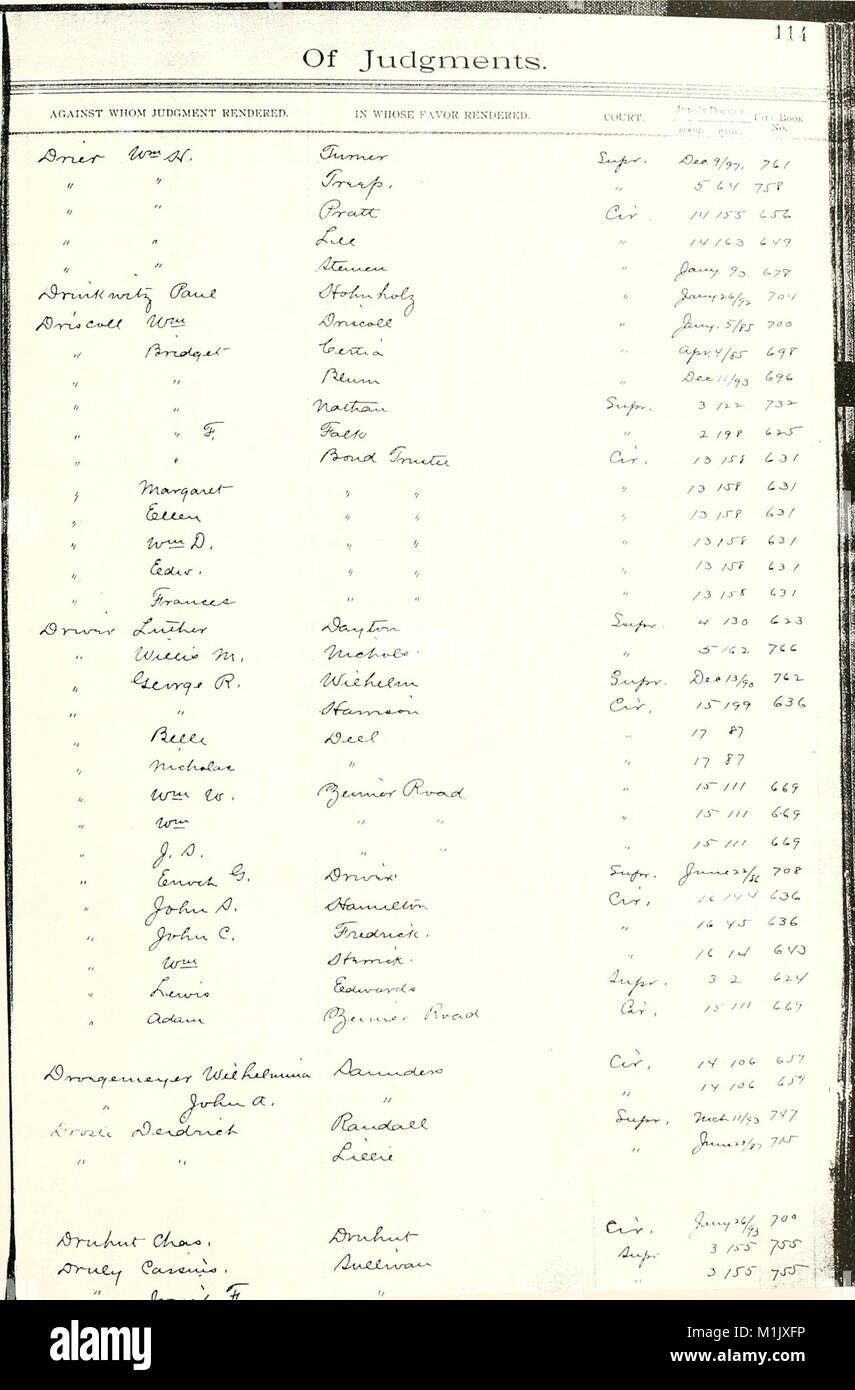 114
Of Judgments.
AGAINST WHOM JUDGMENT RENDERED. IN WHOSE FAVOR RENDERED. COURT. JUDG'T DOCKET. BOOK. PAGE. FILE BOOK No.
Drier Wm H. Turner Supr. Dec 9/97. 761
" " Treep. " 5 64 758
" " Pratt Cir. 14 155 656
" " Lee " 14 163 649
" " Stemen " Jany 93 678
Drinkwitz Paul Hohnholz " Jany 26/92 704
Driscoll Wm Driscoll " Jany. 5/85 700
" Bridget " Apr. 4/85 698
" " Blum " Dec 11/93 696
" " Nathan Supr. 3 122 732
" " F. Falk " 2 198 625
" " Bond Trustee Cir. 13 158 631
" Margaret " " " 13 158 631
" Ellen " " " 13 158 631
" Wm D. " " " 13 158 631
" Edw. " " " 13 158 631
" Frances " " " 13 158 631
Driver Luther Dayton Supr. 4 130 623
" Willis M. Nichols. " 5 162 766
" George R. Wilhelm Supr. Dec 13/90 762
" " Harrison Cir. 15 199 636
" Belle Deel " 17 87
" Nicholas " " 17 87
" Wm W. Road " 15 111 669
" Wm " " " 15 111 669
" J. S. " " " 15 111 669
" Enoch G. Driver Supr. June 22/86 708
" John S. Hamilton Cir. 16 144 636
" John C. Fredrick. " 16 45 636
" Wm " 16 14 643
" Lewis Edwards Supr. 3 2 624
" Adam Road Cir. 15 111 669
Drogemeyer Wilhelmina Saunders Cir. 14 106 659
" John A. " " 14 106 659
Droste Deidrich Randall Supr. Mch 11/93 747
" " Lillie " June 29/87 715
Druhut Chas. Druhut Cir. Jany 26/93 700
Druley Cassius. Sullivan Supr 3 155 755
" F. " " 3 155 755
alamy
Image ID: M1JXFP
www.alamy.com